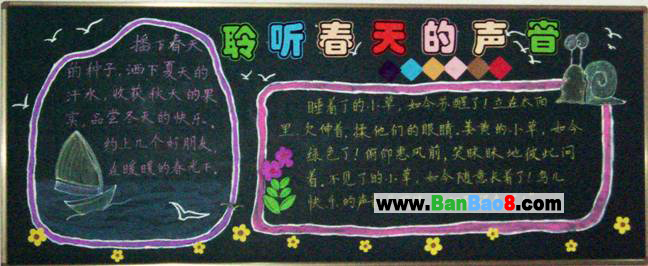 聆听春天的声音
播下春天
的种子,洒下夏天的
汗水,收获秋天的果
实,品尝冬天的快乐。
约上几个好朋友,
在暖暖的春光下。
睡着了的小草,如今苏醒了!立在太阳
里,欠伸着,揉他们的眼睛。萎黄的小草,如今
绿色了!俯仰惠风前,笑眯眯地彼此问
着。不见了的小草,如今随意长着了!鸟儿
快乐的声
www.BanBao8.com